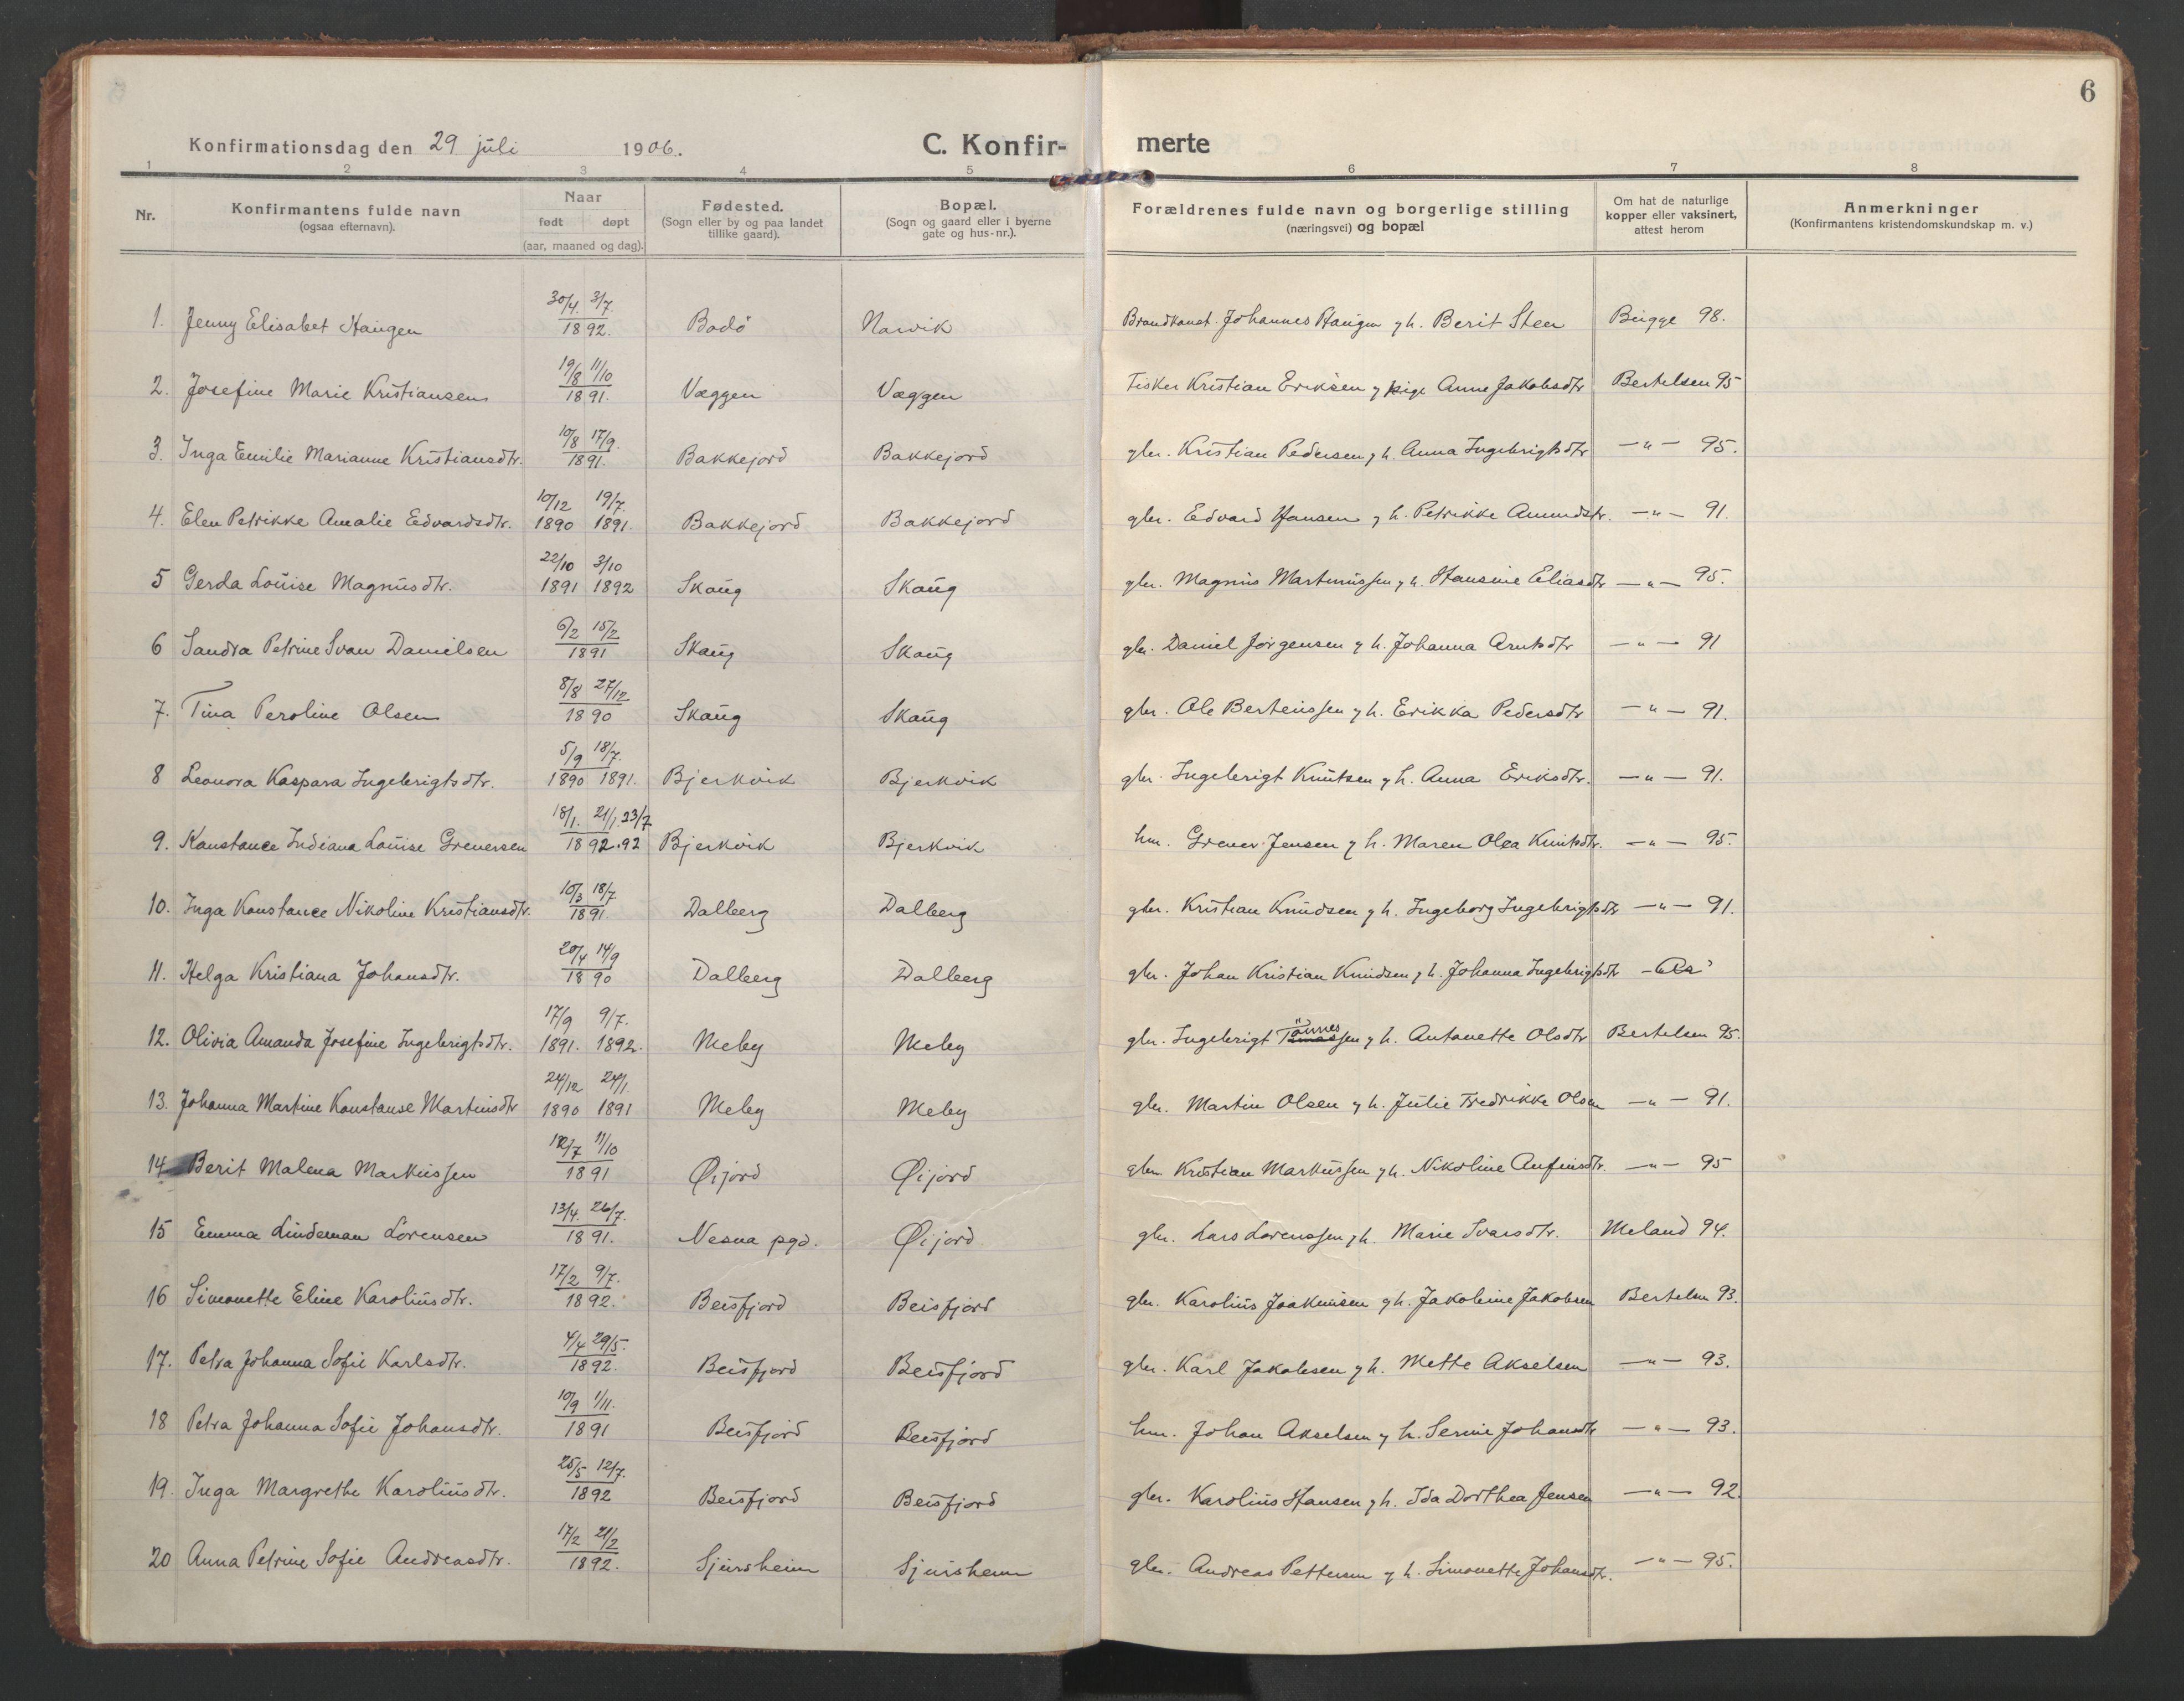 6
Konfirmationsdag den 29 juli 1906. C. Konfir- merte
1 2 3 4 5 6 7 8
Nr. Konfirmantens fulde navn (ogsaa efternavn). Naar født døpt (aar, maaned og dag). Fødested. (Sogn eller by og paa landet tillike gaard). Bopæl. (Sogn og gaard eller i byerne gate og hus-nr.). Forældrenes fulde navn og borgerlige stilling (næringsvei) og bopæl Om hat de naturlige kopper eller vaksinert, attest herom Anmerkninger (Konfirmantens kristendomskundskap m. v.)
1. Jenny Elisabet Haugen 30/4. 3/7. 1892. Bodö Narvik Johannes Haugen y h. Berit Steen 98.
2. Josefine Marie Kristiansen 19/8 11/10 1891. Væggen Væggen Fisker Kristian Eriksen y pige Anne Jakobsdtr Bertelsen 95
3. Inga Emilie Marianne Kristiansdtr. 10/8 17/9. 1891. Bakkejord Bakkejord gbr. Kristian Pedersen y h. Anna Ingebrigtsdtr —"— 95.
4. Elen Petrikke Amalie Edvardsdtr. 10/12 1890 19/7. 1891. Bakkejord Bakkejord gbr. Edvard Hansen y h. Petrikke Amundstr. —"— 91.
5 Gerda Louise Magnusdtr. 22/10 1891 3/10 1892 Skaug Skaug gbr. Magnus Martinussen y h. Hansine Eliasdtr —"— 95.
6 Sandra Petrine Svan Danielsen 6/2 15/2 1891 Skaug Skaug gbr. Daniel Jörgensen y h. Johanna Arntsdtr —"— 91
7. Tina Peroline Olsen 8/8 27/12 1890 Skaug Skaug gbr. Ole Berteussen y h. Erikka Pedersdtr —"— 91.
8 Leonora Kaspara Ingebrigtsdtr. 5/9 1890 18/7. 1891. Bjerkvik Bjerkvik gbr. Ingebrigt Knutsen y h. Anna Eriksdtr. —"— 91.
9. Konstance Indiana Louise Greuersen 18/1. 21/1. 23/7 1892.92 Bjerkvik Bjerkvik hm. Greuer Jensen y h. Maren Olea Knutsdtr. —"— 95.
10. Inga Konstance Nikoline Kristiansdtr. 10/3 18/7 1891. Dalberg Dalberg gbr. Kristian Knudsen y h. Ingeborg Ingebrigtsdtr —"— 91.
11. Helga Kristiana Johansdtr. 20/4 14/9 1890 Dalberg Dalberg gbr. Johan Kristian Knudsen y h. Johanna Ingebrigtsdtr
12. Olivia Amanda Josefine Ingebrigtsdtr. 17/9 1891. 9/7. 1892. Meby Meby gbr. Ingebrigt Tönnessen y h. Antonette Olsdtr Bertelsen 95.
13. Johanna Martine Konstanse Martinsdtr 24/12 1890 24/1. 1891 Meby Meby gbr. Martin Olsen y h. Julie Fredrikke Olsen —"— 91.
14 Berit Malena Markussen 12/7 11/10 1891 Øijord Øijord gbr. Kristian Markussen y h. Nikoline Anfinsdtr. —"— 95
15 Emma Lindeman Lorensen 13/4. 26/7. 1891. Nesna pgd. Øijord gbr. Lars Lorenssen y h. Marie Ivarsdtr. Meland 94.
16 Simonette Eline Karolinsdtr. 17/2 9/7. 1892. Beisfjord Beisfjord gbr. Karolius Joakimsen y h. Jakobine Jakobsen Bertelsen 93.
17. Petra Johanna Sofie Karlsdtr. 4/4 29/5. 1892. Beisfjord Beisfjord gbr. Karl Jakobsen y h. Mette Akselsen —"— 93.
18 Petra Johanna Sofie Johansdtr. 10/9 1/11. 1891 Beisfjord Beisfjord hm. Johan Akselsen y h. Serine Johansdtr —"— 93.
19. Inga Margrethe Karoliusdtr. 25/5 12/7. 1892 Beisfjord Beisfjord gbr. Karolius Hansen y h. Ida Dorthea Jensen —"— 92.
20 Anna Petrine Sofie Andreasdtr. 17/2 21/2 1892. Sjursheim Sjursheim gbr. Andreas Pettersen y h. Simonette Johansdtr. —"— 95.